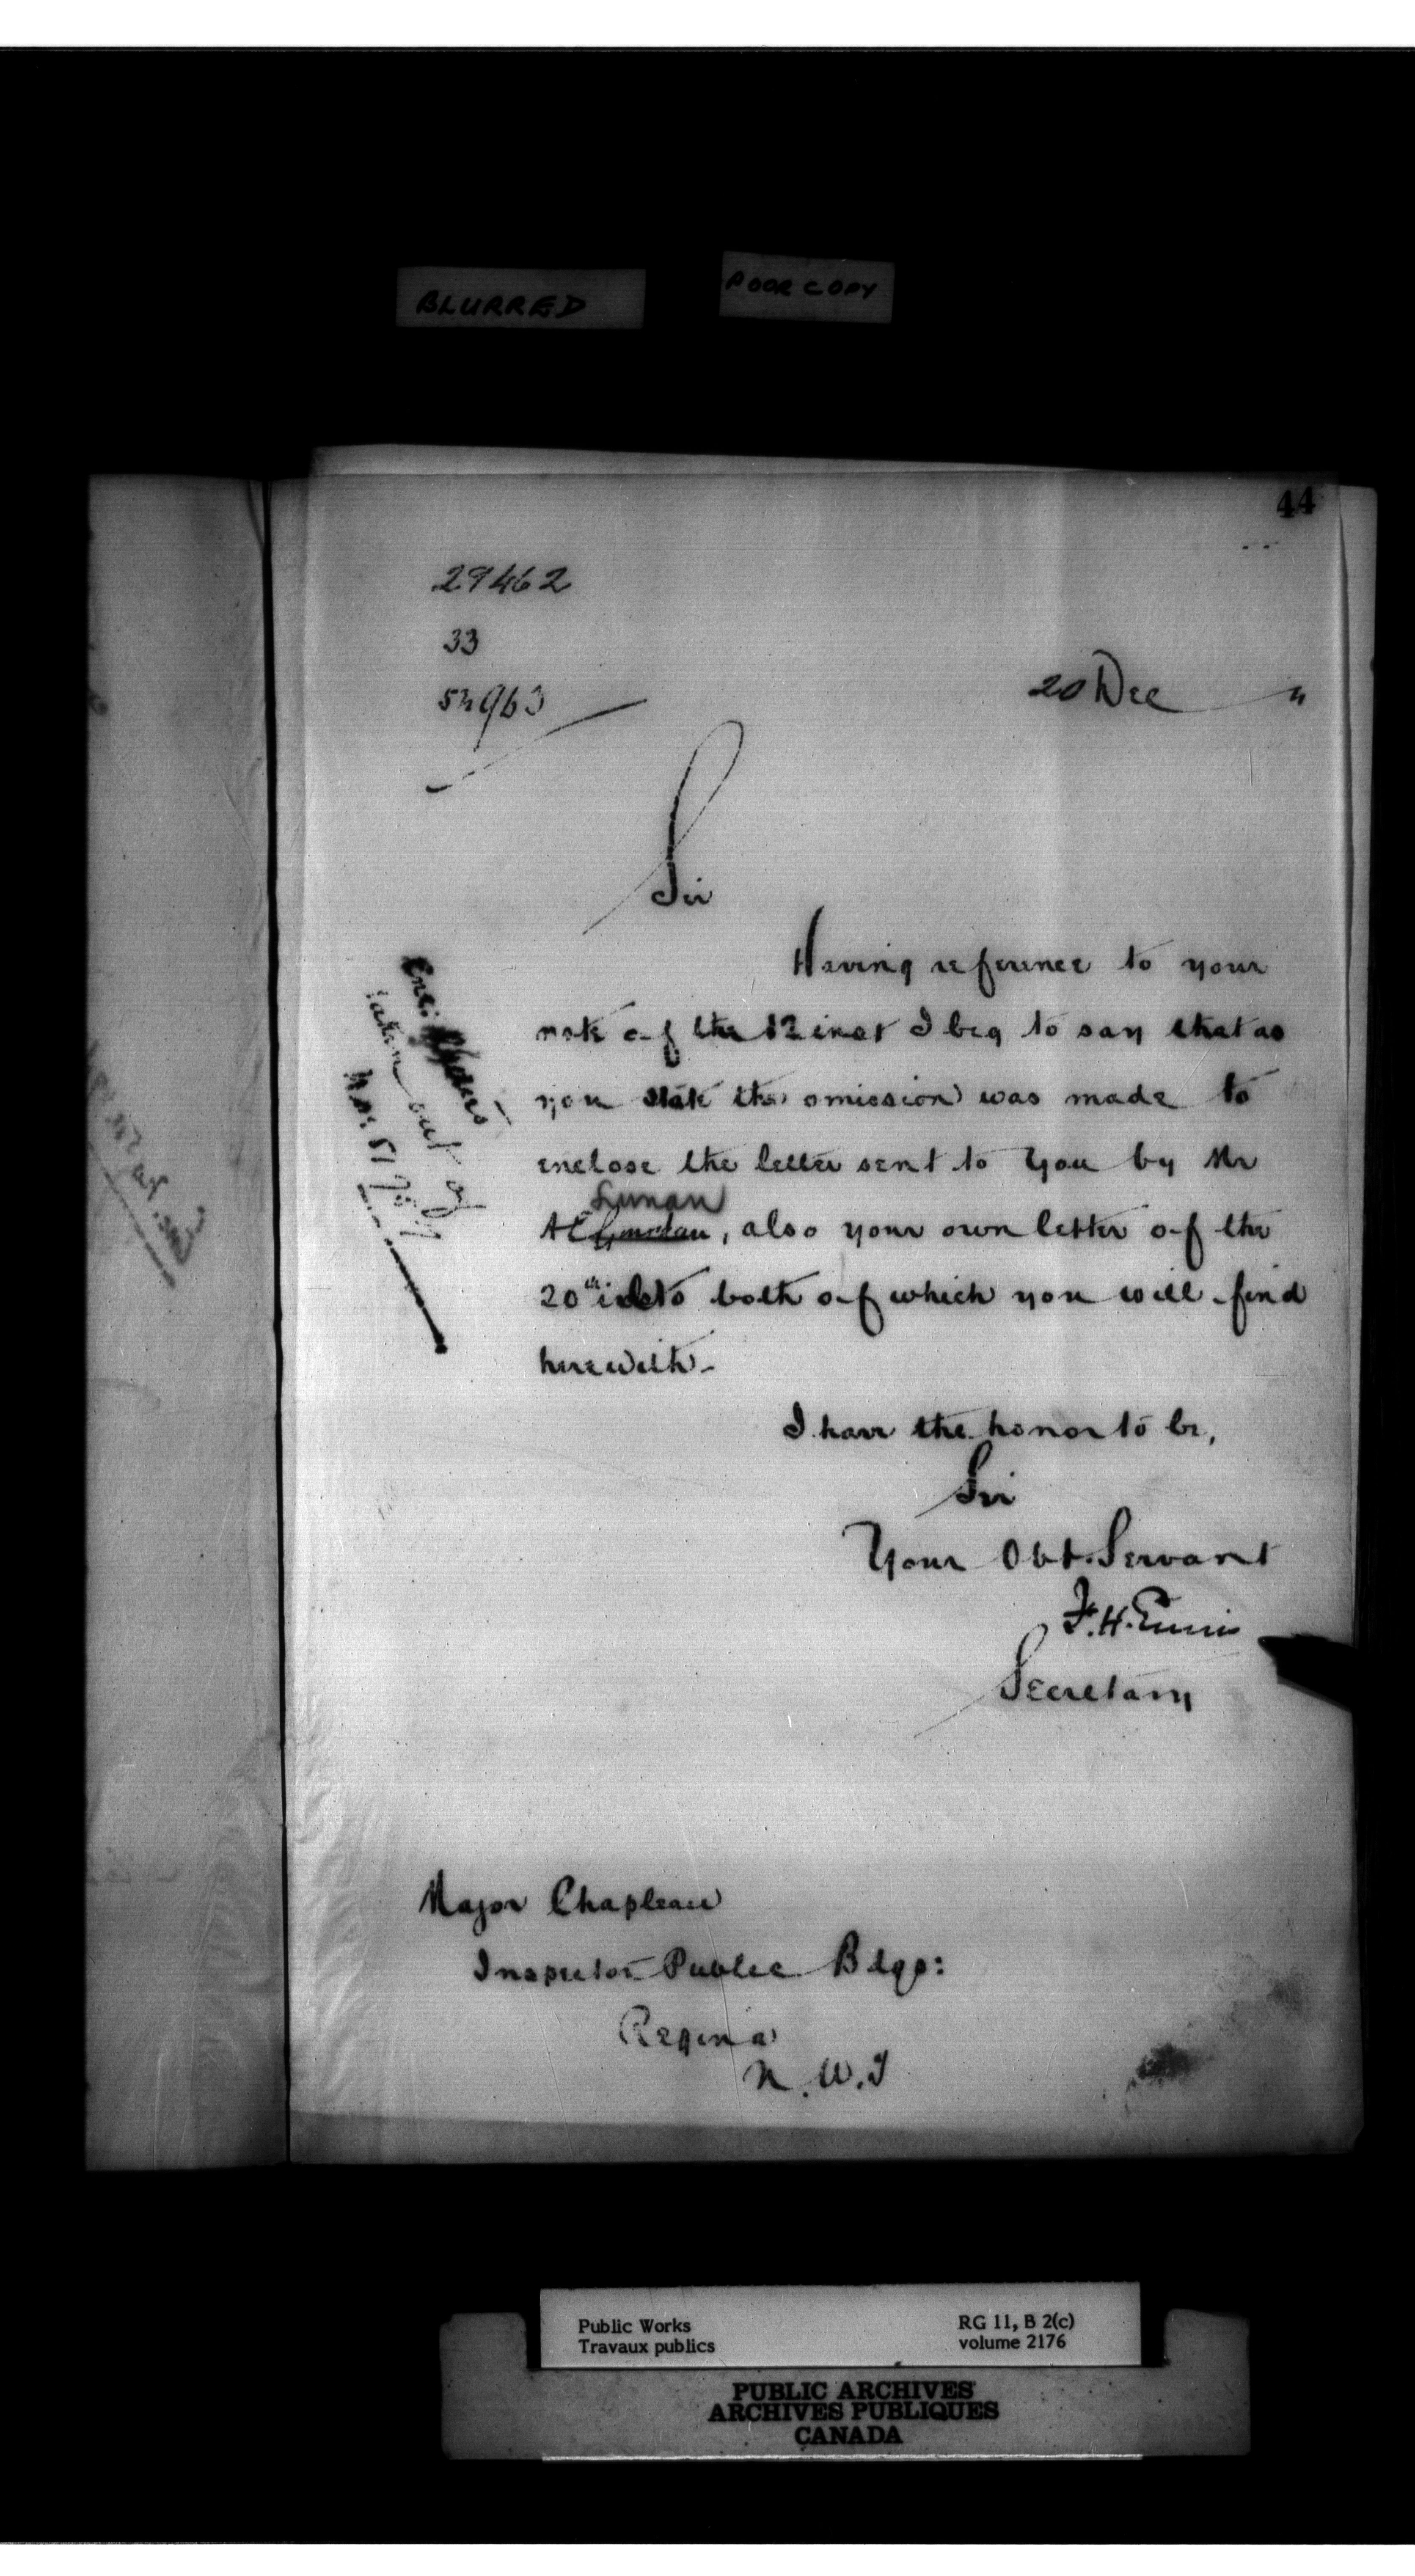 BLURRED
POOR COPY
44
29462
33
20 Dec "
Sir
Having reference to your
note of the 12 inst I beg to say that as
you state the omission was made to
enclose the letter sent to you by Mr
Lunan
A C , also your own letter of the
20th both of which you will find
herewith.
I have the honor to be,
Sir
Your Obt. Servant
F. H. Ennis
Secretary
taken out of
Major Chapleau
Inspector Public Bdgs:
Regina
N. W. T
Public Works
Travaux publics
RG 11, B 2(c)
volume 2176
PUBLIC ARCHIVES
ARCHIVES PUBLIQUES
CANADA